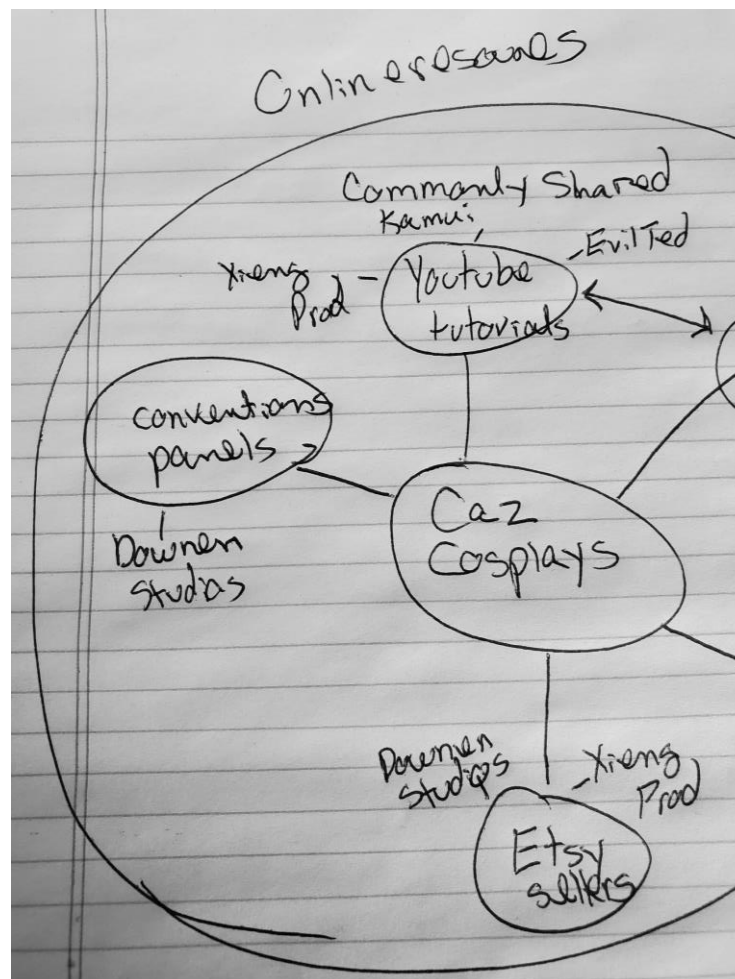 Online resoures
Commonly Shared
Kamui
Evil Ted
Xieng
Prod
Youtube
tutorials
conventions
panels
Downen
Studios
Caz
Cosplays
Downen
Studios
Xieng
Prod
Etsy
sellers